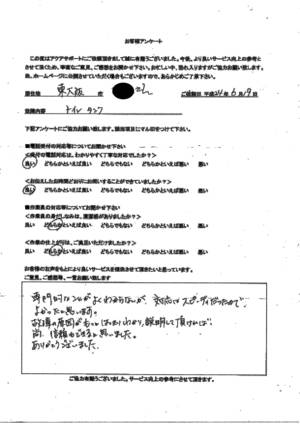 お客様アンケート
この度はアクアサポートにご依頼頂きまして誠に有難うございました。今後、より良いサービス向上の参考と
させて頂くため、率直なご意見、ご感想をお聞かせ下さい。お忙しい中、恐れ入りますがご協力お願い致します。
尚、ホームページに公開させていただく場合もございますので、あらかじめご了承下さい。
居住地 東大阪 市 ご依頼日 平成24年6月19日
依頼内容 トイレ タンク
下記アンケートにご協力お願い致します。該当項目にマル印をつけて下さい。
■電話受付の対応等についてお聞かせ下さい
<受付の電話対応は、わかりやすく丁寧な対応でしたか?>
良い どちらかといえば良い どちらでもない どちらかといえば悪い 悪い
<お伝えしたお時間どおりにお伺いすることができていましたか?>
良い どちらかといえば良い どちらでもない どちらかといえば悪い 悪い
■作業員の対応等についてお聞かせ下さい
<作業員の身だしなみは、清潔感がありましたか?>
良い どちらかといえば良い どちらでもない どちらかといえば悪い 悪い
<作業の仕上がりは、ご満足いただけましたか?>
良い どちらかといえば良い どちらでもない どちらかといえば悪い 悪い
お客様のお声をもとにより良いサービスを提供させて頂きたいと思っています。
ご意見、ご感想等、一言お願い致します
専門的なことがよくわからないが、対応はスピーディだったので、
よかったと思います。
故障の原因がもっとはっきりわかり、説明して頂ければ
尚、信頼もできると思いました。
ありがとうございました。
ご協力有難うございました。サービス向上の参考にさせて頂きます。